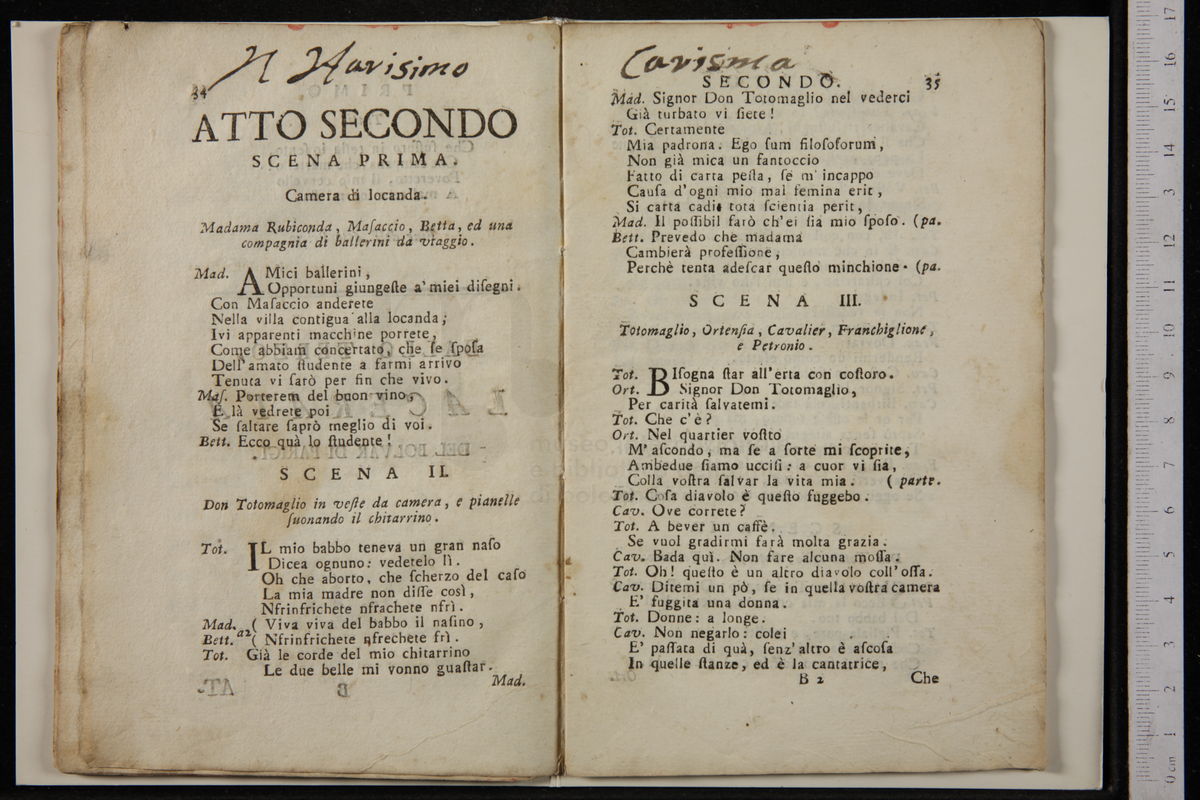 Il Harisimo
34
ATTO SECONDO
SCENA PRIMA.
Camera di locanda.
Madama Rubiconda, Maſaccio, Betta, ed una
compagnia di ballerini da viaggio.
Mad. AMici ballerini,
Opportuni giungeſte a' miei diſegni.
Con Maſaccio anderete
Nella villa contigua alla locanda;
Ivi apparenti macchine porrete,
Come abbiam concertato, che ſe ſpoſa
Dell' amato ſtudente a farmi arrivo
Tenuta vi farò per fin che vivo.
Maſ. Porterem del buon vino,
E là vedrete poi
Se ſaltare ſaprò meglio di voi.
Bett. Ecco quà lo ſtudente!
SCENA II.
Don Totomaglio in veſte da camera, e pianelle
ſuonando il chitarrino.
Tot. IL mio babbo teneva un gran naſo
Dicea ognuno: vedetelo lì.
Oh che aborto, che ſcherzo del caſo
La mia madre non diſſe così,
Nfrinfrichete nfrachete nfrì.
Mad. ( Viva viva del babbo il naſino,
Bett. a2 ( Nfrinfrichete nfrechete frì.
Tot. Già le corde del mio chitarrino
Le due belle mi vonno guaſtar.
Mad.
Carisma
SECONDO. 35
Mad. Signor Don Totomaglio nel vederci
Già turbato vi ſiete!
Tot. Certamente
Mia padrona. Ego ſum filoſoforum,
Non già mica un fantoccio
Fatto di carta peſta, ſe m' incappo
Cauſa d'ogni mio mal femina erit,
Si carta cadit tota ſcientia perit,
Mad. Il poſſibil farò ch'ei ſia mio ſpoſo. (pa.
Bett. Prevedo che madama
Cambierà profeſſione,
Perchè tenta adeſcar queſto minchione. (pa.
SCENA III.
Totomaglio, Ortenſia, Cavalier, Franchiglione,
e Petronio.
Tot. BIſogna ſtar all'erta con coſtoro.
Ort. Signor Don Totomaglio,
Per carità ſalvatemi.
Tot. Che c'è?
Ort. Nel quartier voſtto
M' aſcondo, ma ſe a ſorte mi ſcoprite,
Ambedue ſiamo ucciſi: a cuor vi ſia,
Colla voſtra ſalvar la vita mia. (parte.
Tot. Coſa diavolo è queſto fuggebo.
Cav. Ove correte?
Tot. A bever un caffè.
Se vuol gradirmi farà molta grazia.
Cav. Bada quì. Non fare alcuna moſſa.
Tot. Oh! queſto è un altro diavolo coll' oſſa.
Cav. Ditemi un pò, ſe in quella voſtra camera
E' fuggita una donna.
Tot. Donne: a longe.
Cav. Non negarlo: colei
E' paſſata di quà, ſenz' altro è aſcoſa
In quelle ſtanze, ed è la cantatrice,
B 2 Che